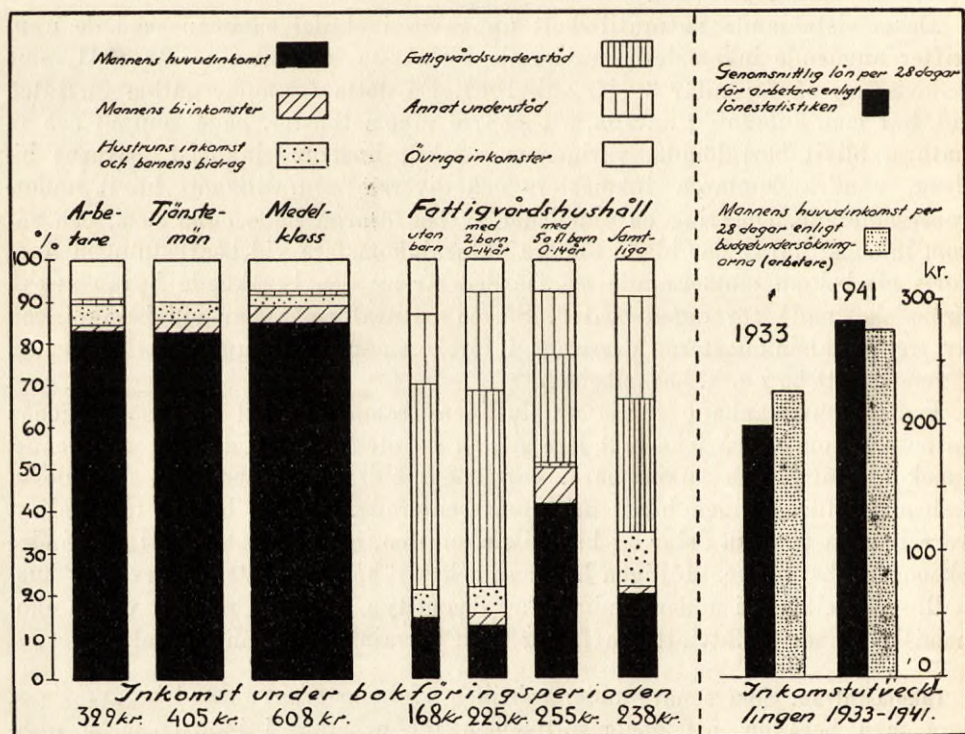 Mannens huvudinkomst
Mannens biinkomster
Hustruns inkomst
och barnens bidrag
Fattigvårdsunderstöd
Annat understöd
Övriga inkomster
Genomsnittlig lön per 28 dagar
för arbetare enligt
lönestatistiken
Mannens huvudinkomst per
28 dagar enligt
budgetundersökning-
arna (arbetare)
Arbe-
tare
Tjänste-
män
Medel-
klass
Fattigvårdshushåll
utan
barn
med
2 barn
0-14 år
med
5 o fl barn
0-14 år
Samt-
liga
%
100
90
80
70
60
50
40
30
20
10
0
Inkomst under bokföringsperioden
329 kr. 405 kr. 608 kr. 168 kr. 225 kr. 255 kr. 238 kr.
kr.
300
200
100
0
1933
1941
Inkomstutveck-
lingen 1933-1941.